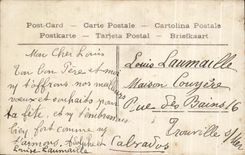 Post-Card – Carte Postale – Cartolina Postale
Postkarte – Tarjeta Postal – Briefkaart
Mon Cher Louis
Ton Bon Père et moi
t'offrons nos meilleurs
vœux et souhaits pour
ta fête, et t'embrassons
fort comme
t'aimons
Louise Laumaille
Louis Laumaille
Maison Couyère
Rue des Bains 16
Trouville s/Mer
Calvados